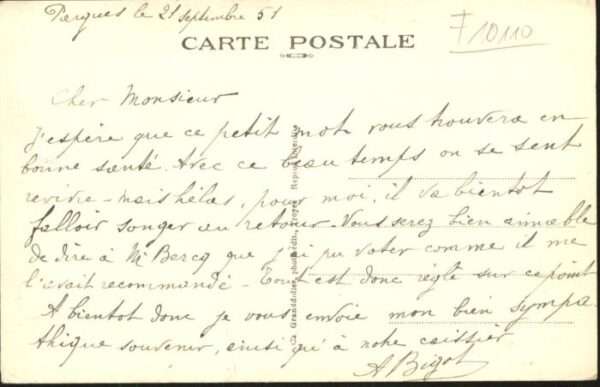 Pargues le 21 septembre 51
F 10110
CARTE POSTALE
Cher Monsieur
J'espère que ce petit mot vous trouvera en
bonne santé. Avec ce beau temps on se sent
revivre - mais hélas, pour moi, il va bientot
falloir songer au retour. Vous serez bien aimable
de dire à Mr Bercq que j'ai pu voter comme il me
l'avait recommandé - Tout est donc réglé sur ce point
A bientot donc je vous envoie mon bien sympa-
thique souvenir, ainsi qu'à notre caissier
A Bigot